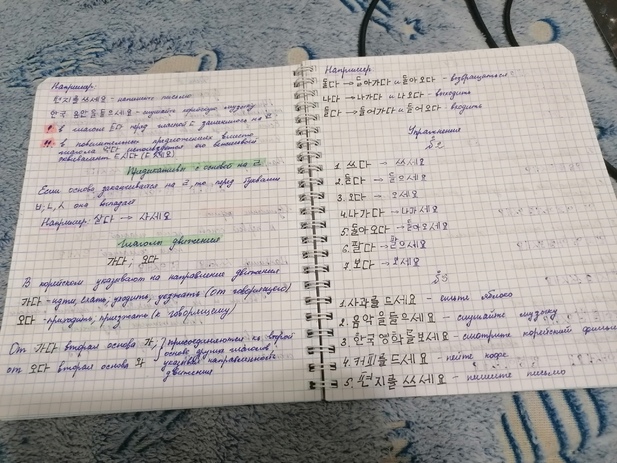 Например:
편지를 쓰세요 - напишите письмо
한국 음악을 들으세요 - слушайте корейскую музыку
! в глаголе 듣다 перед гласной ㄷ заменяется на ㄹ
!! в повелительных предложениях вместо
глагола 먹다 используется его вежливый
эквивалент 드시다 (드세요)
Предикативы с основой на ㄹ
Если основа заканчивается на ㄹ, то перед буквами
ㅂ, ㄴ, ㅅ она выпадает
Например: 살다 → 사세요
Глаголы движения
가다, 오다
В корейском указывают на направление движения
가다 - идти, ехать, уходить, уезжать (от говорящего)
오다 - приходить, приезжать (к говорящему)
От 가다 вторая основа 가, присоединяются ко второй
от 오다 вторая основа 와 основе других глаголов
указывая направленность
движения.
Например
돌다 → 돌아가다 и 돌아오다 - возвращаться
나다 → 나가다 и 나오다 - выходить
들다 → 들어가다 и 들어오다 - входить
Упражнения
§2
1. 쓰다 → 쓰세요
2. 듣다 → 들으세요
3. 오다 → 오세요
4. 나가다 → 나가세요
5. 돌아오다 → 돌아오세요
6. 팔다 →
7. 보다 → 보세요
§5
1. 사과를 드세요 - ешьте яблоко
2. 음악을 들으세요 - слушайте музыку
3. 한국 영화를 보세요 - смотрите корейский фильм
4. 커피를 드세요 - пейте кофе
5. 편지를 쓰세요 - пишите письмо